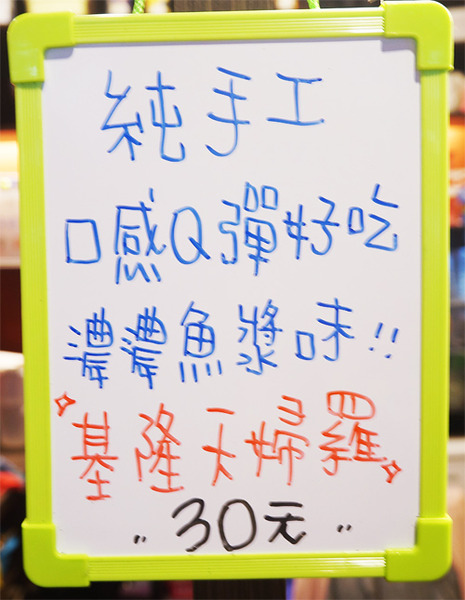 純手工
口感Q彈好吃
濃濃魚漿味!!
基隆天婦羅
〃30元〃